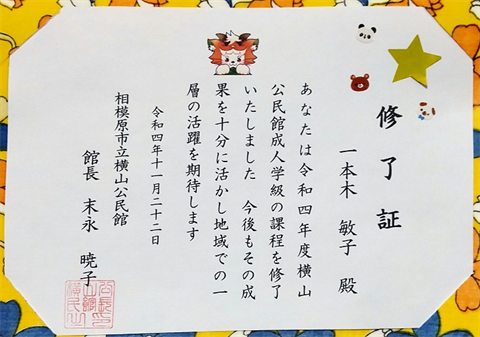 修了証
一本木 敏子 殿
あなたは令和四年度横山
公民館成人学級の課程を修了
いたしました 今後もその成
果を十分に活かし地域での一
層の活躍を期待します
令和四年十一月二十二日
相模原市立横山公民館
館長 末永 暁子